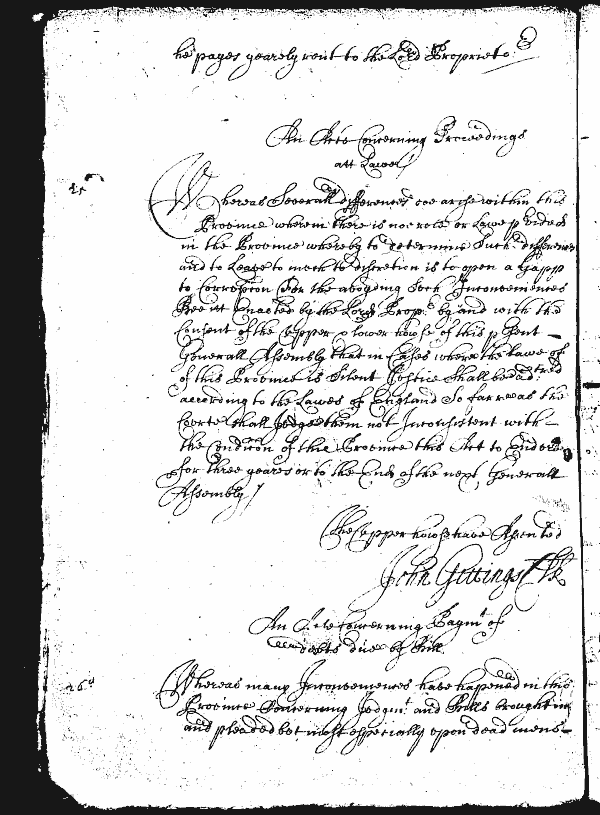 he pages yearely rent to the Lord Propriet.
An Acte Concerning Proceedings
att Lawe
Whereas Severall differences doe arise within this
Province wherein there is noe rule or Lawe pvided
in the Province whereby to determine Such differences
and to Leave to much to discretion is to open a Gapp
to Corruption For the avoyding Such Inconveniences
Bee itt Enacted by the Lord Propr. by and with the
Consent of the upper & lower howse of this psent
Generall Assembly that in Cases where the Lawe of
of this Province is Silent Justice Shall bee ad: tred
according to the Lawes of England So farr as the
Corte shall Judge them not Inconsistent with
the Condicon of this Province this Act to Endure
for three yeares or to the End of the next Generall
Assembly
The upper howse have Assented
John Gittings Clk
An Acte Concerning Paymt of
debts due of Bill
26th
Whereas many Inconveniences have happened in this
Province Concerning Judgmt and Bills brought in
and pleaded but most especially upon dead mens